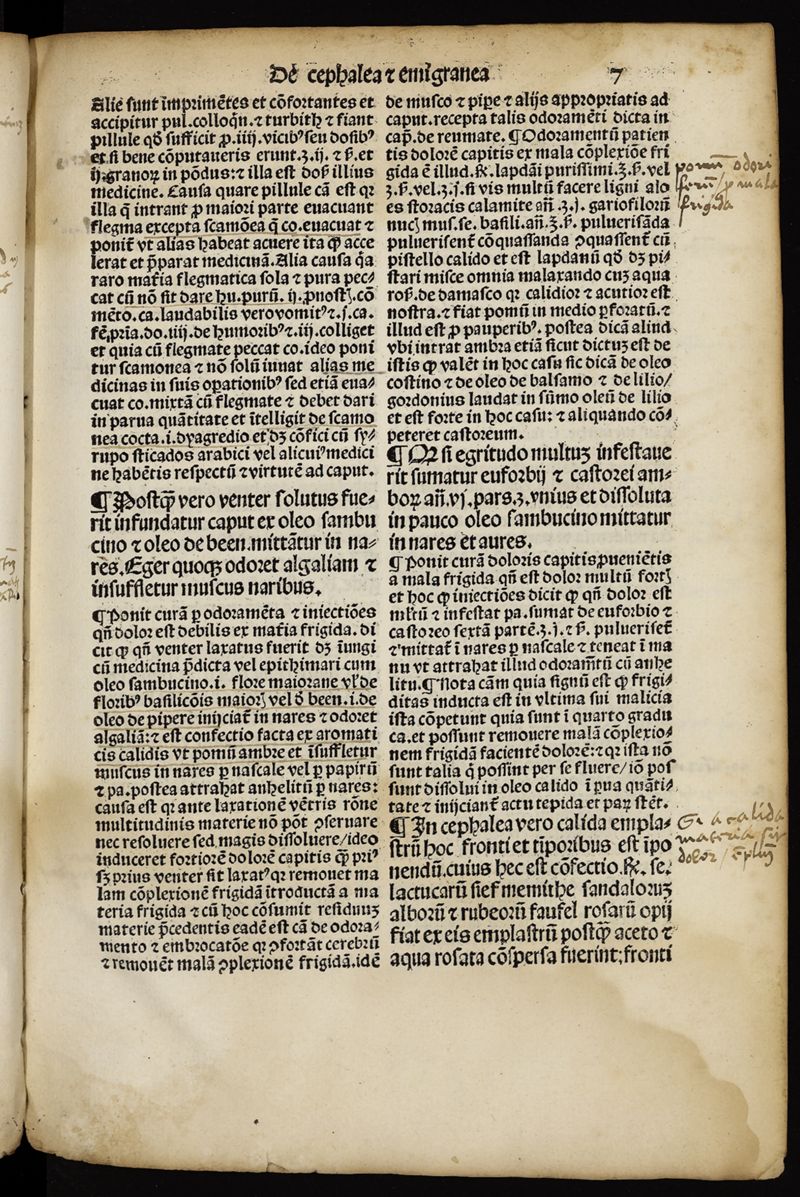 De cephalea ⁊ emigranea 7
Alie sunt īmprimētes et cōfortantes et
accipitur pul. colloqn̄. ⁊ turbith ⁊ fiant
pillule qď sufficit ꝓ .iiij. vicibꝰ seu dosibꝰ
et si bene cōputaueris erunt .ʒ.ij. ⁊ ß. et
ij. granoꝝ in pōdus: ⁊ illa est dos̄ illius
medicine. Causa quare pillule cā est qꝛ
illa q̄ intrant ꝓ maiori parte euacuant
flegma excepta scamōea q̄ co. euacuat ⁊
ponit̄ vt alias habeat acuere ita ꝙ acce
lerat et p̄parat medicinā. Alia causa q̄a
raro mat̄ia flegmatica sola ⁊ pura pec⸗
cat cū nō sit dare hu. purū. ij. ꝓnostꝭ. cō
mēto. ca. laudabilis vero vomitꝰ ⁊. j. ca.
fē. pria. do. iiij. de humoribꝰ ⁊. iij. colliget
et quia cū flegmate peccat co. ideo poni
tur scamonea ⁊ nō solū iuuat alias me
dicinas in suis oꝑationibꝰ sed etiā eua⸗
cuat co. mixtā cū flegmate ⁊ debet dari
in parua quātitate et ītelligit de scamo
nea cocta .i. dyagredio et dʒ cōfici cū sy⸗
rupo sticados arabici vel alicuiꝰ medici
ne habētis respectū ⁊ virtutē ad caput.
¶ Postꝙ vero venter solutus fue⸗
rit infundatur caput ex oleo sambu
cino ⁊ oleo de been. mittātur in na⸗
res. Eger quoqꝫ odoret algaliam ⁊
insuffletur muscus naribus.
¶ Ponit curā ꝑ odoramēta ⁊ iniectiōes
qn̄ dolor est debilis ex mat̄ia frigida. di
cit ꝙ qn̄ venter laxatus fuerit dʒ īungi
cū medicina p̄dicta vel epithimari cum
oleo sambucino .i. flore maiorane vl̄ de
floribꝰ basilicōis maiorꝭ vel ō been .i. de
oleo de pipere inijciat̄ in nares ⁊ odoret
algaliā: ⁊ est confectio facta ex aromati
cis calidis vt pomū ambre et īsuffletur
muscus in nares ꝑ nascale vel ꝑ papirū
⁊ pa. postea attrahat anhelitū ꝑ nares:
causa est qꝛ ante laxationē vētris rōne
multitudinis materie nō pōt ꝯseruare
nec resoluere sed magis dissoluere/ideo
induceret fortiorē dolorē capitis ꝙ priꝰ
sʒ prius venter sit laxatꝰ qꝛ remouet ma
lam cōplexionē frigidā ītroductā a ma
teria frigida ⁊ cū hoc cōsumit residuuʒ
materie p̄cedentis eadē est cā de odora⸗
mento ⁊ embrocatōe qꝛ ꝯfortāt cerebrū
⁊ remouēt malā ꝯplexionē frigidā. idē
de musco ⁊ pipe ⁊ alijs appropriatis ad
caput. recepta talis odoramēti dicta in
cap̄. de reumate. ¶ Odoramentū patien
tis dolorē capitis ex mala cōplexiōe fri
gida ē illud. ℞. lapdāi purissimi .ʒ.ß. vel
ʒ.ß. vel .ʒ.j. si vis multū facere ligni alo
es storacis calamite an̄ .ʒ.j. gariofilorū
nucꝭ mus. se. basili. an̄ .ʒ.ß. puluerisāda
puluerisent̄ cōquassanda ꝯquassent̄ cū
pistello calido et est lapdanū qď dʒ pi⸗
stari misce omnia malaxando cuʒ aqua
ros̄. de damasco qꝛ calidior ⁊ acutior est
nostra. ⁊ fiat pomū in medio ꝑforatū. ⁊
illud est ꝓ pauperibꝰ. postea dicā aliud
vbi intrat ambra etiā sicut dictuʒ est de
istis ꝙ valēt in hoc casu sic dicā de oleo
costino ⁊ de oleo de balsamo ⁊ de lilio/
gordonius laudat in sūmo oleū de lilio
et est forte in hoc casu: ⁊ aliquando cō⸗
peteret castoreum.
¶ Qꝛ si egritudo multuʒ infestaue
rit sumatur euforbij ⁊ castorei am⸗
boꝝ an̄. vj. pars .ʒ. vnius et dissoluta
in pauco oleo sambucino mittatur
in nares et aures.
¶ Ponit curā doloris capitis ꝓueniētis
a mala frigida qn̄ est dolor multū fortꝭ
et hoc ꝙ iniectiōes dicit ꝙ qn̄ dolor est
ml̄tū ⁊ infestat pa. sumat de euforbio ⁊
castoreo sextā partē .ʒ.j. ⁊ ß. puluerisēt̄
⁊ mittat̄ ī nares ꝑ nascale ⁊ teneat ī ma
nu vt attrahat illud odoramītū cū anhe
litu. ¶ Nota cām quia signū est ꝙ frigi⸗
ditas inducta est in vltima sui malicia
ista cōpetunt quia sunt ī quarto gradu
ca. et possunt remouere malā cōplexio⸗
nem frigidā facientē dolorē: ⁊ qꝛ ista nō
sunt talia q̄ possint per se fluere/iō pos
sunt dissolui in oleo calido ī ꝑua quāti⸗
tate ⁊ inijciant̄ actu tepida et paꝝ stēt.
¶ In cephalea vero calida empla⸗
strū hoc fronti et tīporibus est īpo
nendū. cuius hec est cōfectio. ℞. se.
lactucarū sief memithe sandaloruʒ
alborū ⁊ rubeorū faufel rosarū opij
fiat ex eis emplastrū postꝙ aceto ⁊
aqua rosata cōspersa fuerint: fronti